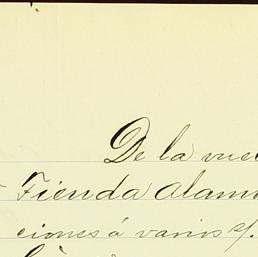 De la vuel
Tienda Alam
ciones á varios s/.